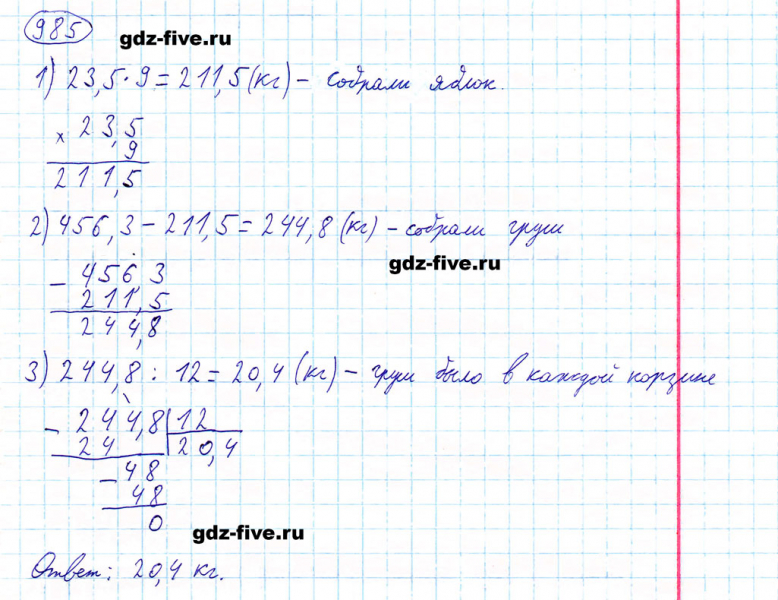 985
gdz-five.ru
1) 23,5 · 9 = 211,5 (кг) – собрали яблок.
× 23,5
9
211,5
2) 456,3 – 211,5 = 244,8 (кг) – собрали груш
gdz-five.ru
– 456,3
211,5
244,8
3) 244,8 : 12 = 20,4 (кг) – груш было в каждой корзине
– 244,8 | 12
24 | 20,4
– 48
48
0
gdz-five.ru
Ответ: 20,4 кг.